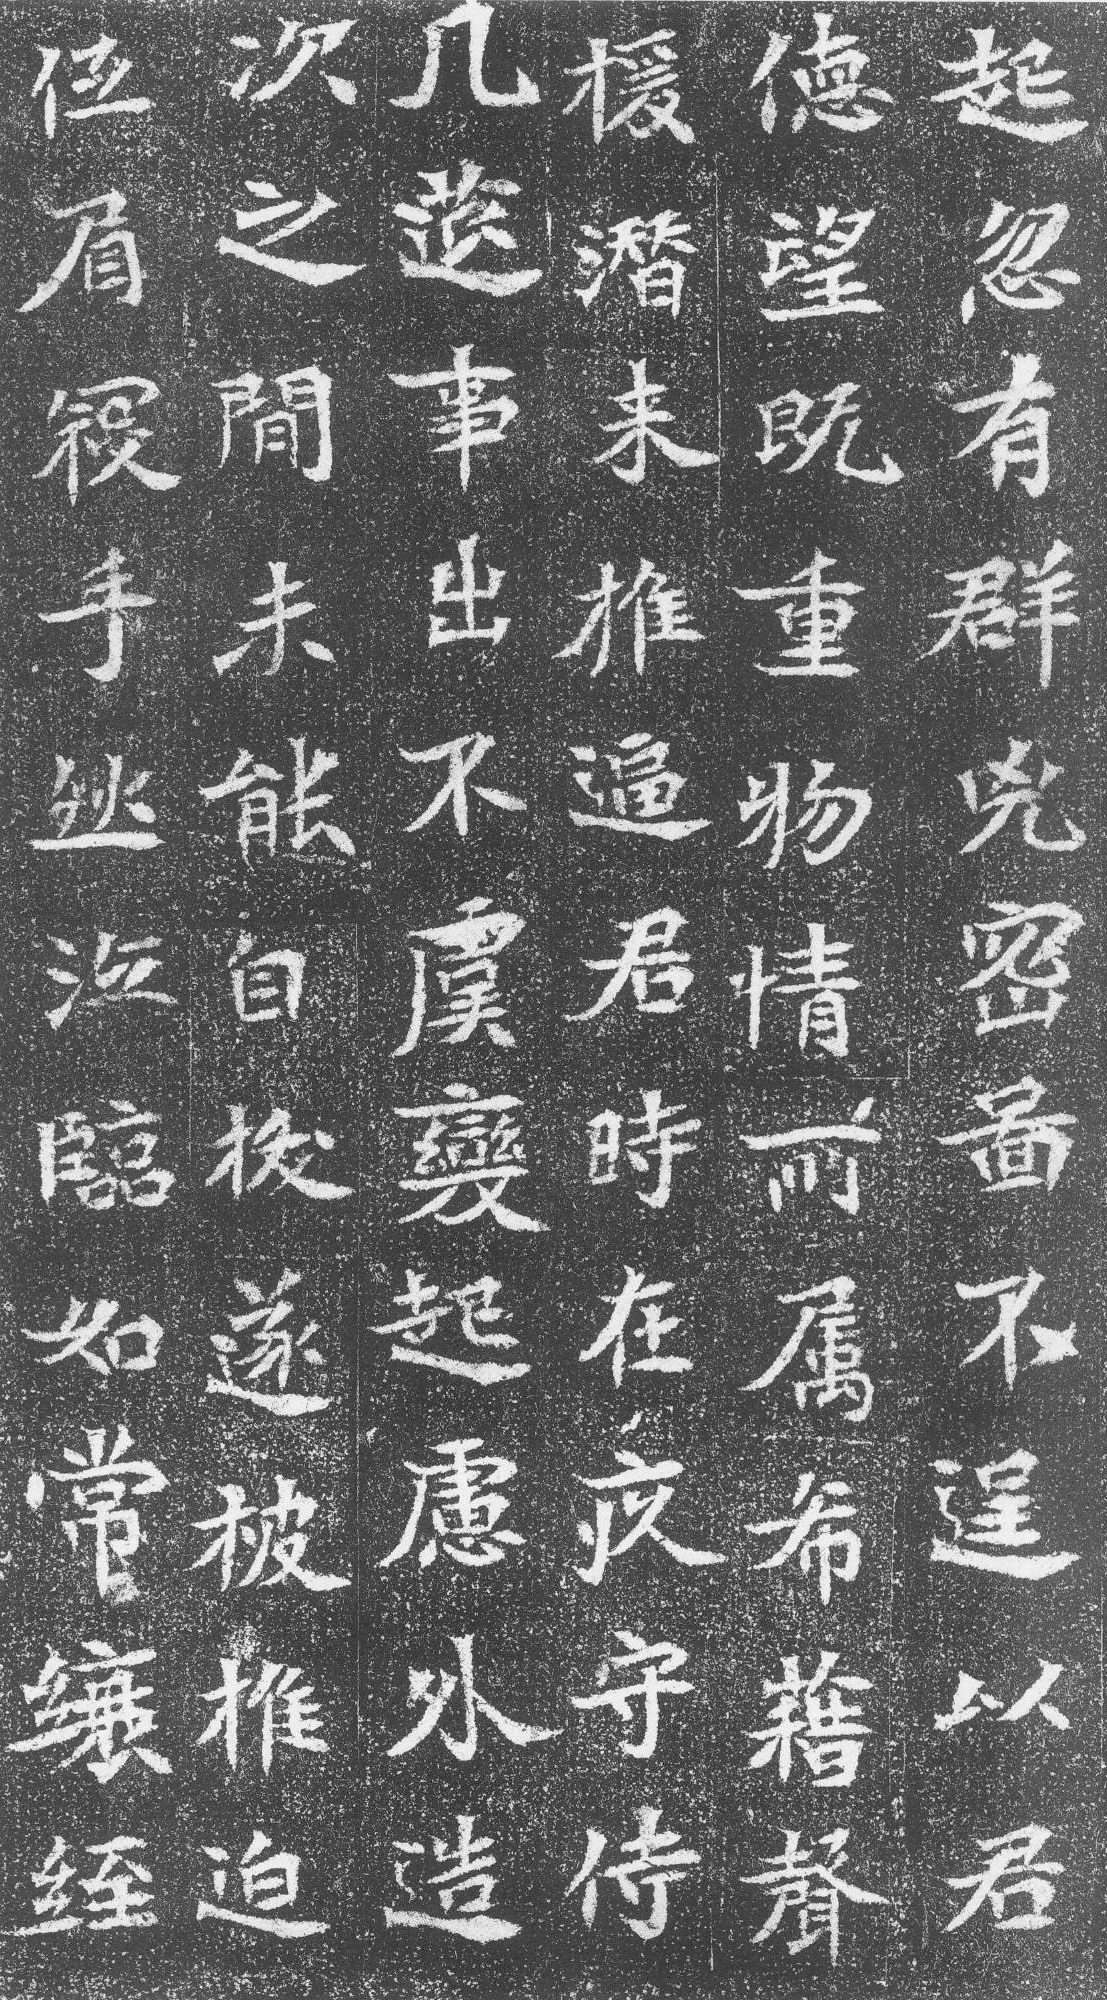 起忽有群兇密圖不逞以君
德望既重物情所属希藉聲
援潜来推逼君時在疚守侍
几筵事出不虞變起慮外造
次之間未能自拔遂被推迫
低眉寇手然泣臨如常縗絰